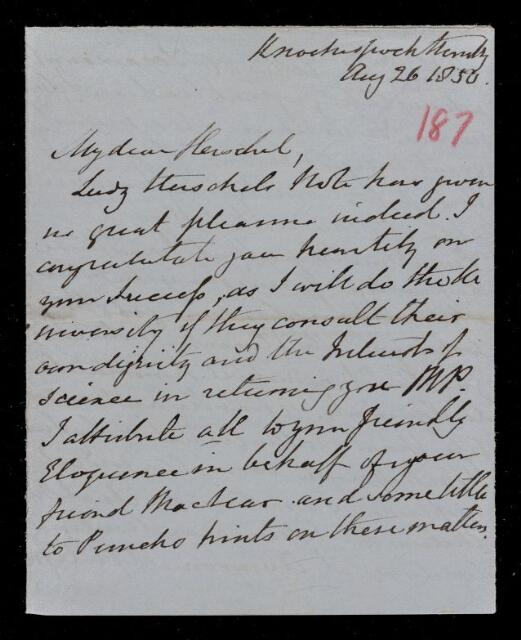 Knockespock
Aug 26 1850.
187
My dear Herschel,
Lady Herschels Note has given
us great pleasure indeed. I
congratulate you heartily on
your success, as I will do the
University if they consult their
own dignity and the Interests of
Science in returning you MP.
I attribute all to your friendly
Eloquence in behalf of your
friend Maclear and some little
to Punchs hints on these matters.